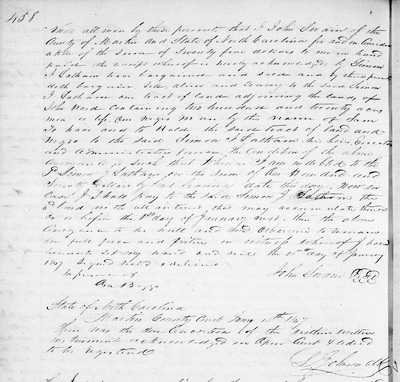 458
Know all men by these presents that I John Swain of the
County of Martin and State of North Carolina for and in consider
ation of the Sum of Twenty five dollars to me in hand
paid the receipt whereof is hereby acknowledged by Simon
J Latham have bargained and sold and by these presents
doth bargain sell alien and Convey to the said Simon
J Latham one tract of land adjoining the lands of
John Ward Containing two hundred and twenty acres
more or less One Negro Man by the name of Sam
To have and to Hold the said tract of land and
Negro to the said Simon J Latham his heirs Executors
and administrators forever the Condition of the above
Conveyance is such that Whereas I am indebted to the
Simon J Latham in the Sum of One Hundred and
Seventy Dollars by bearing date this day Now in
Case I shall pay to the said Simon J Latham the
and all interest that may accumulate thereon
on or before the 1st day of January next then the above
Conveyance to be null and void Otherwise to remain
in full force and virtue in witness whereof I have
hereunto set my hand and seal the day of January
Signed sealed & delivered
In presence of
John Swain Seal
Biggs
State of North Carolina
Martin County Court
Then was the due Execution of the written
Instrument acknowledged in Open Court & Ordered
to be registered